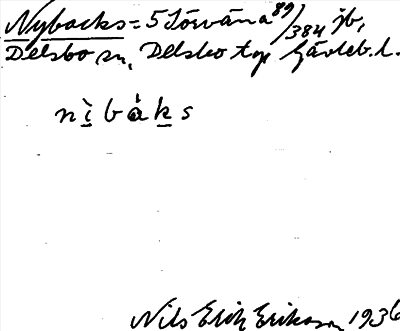 Nybacks = 5 Sörvåna 89/384 jb,
Delsbo sn, Delsbo tgs Gävleb. l.
nìbáks
Nils Erik Eriksson 1936